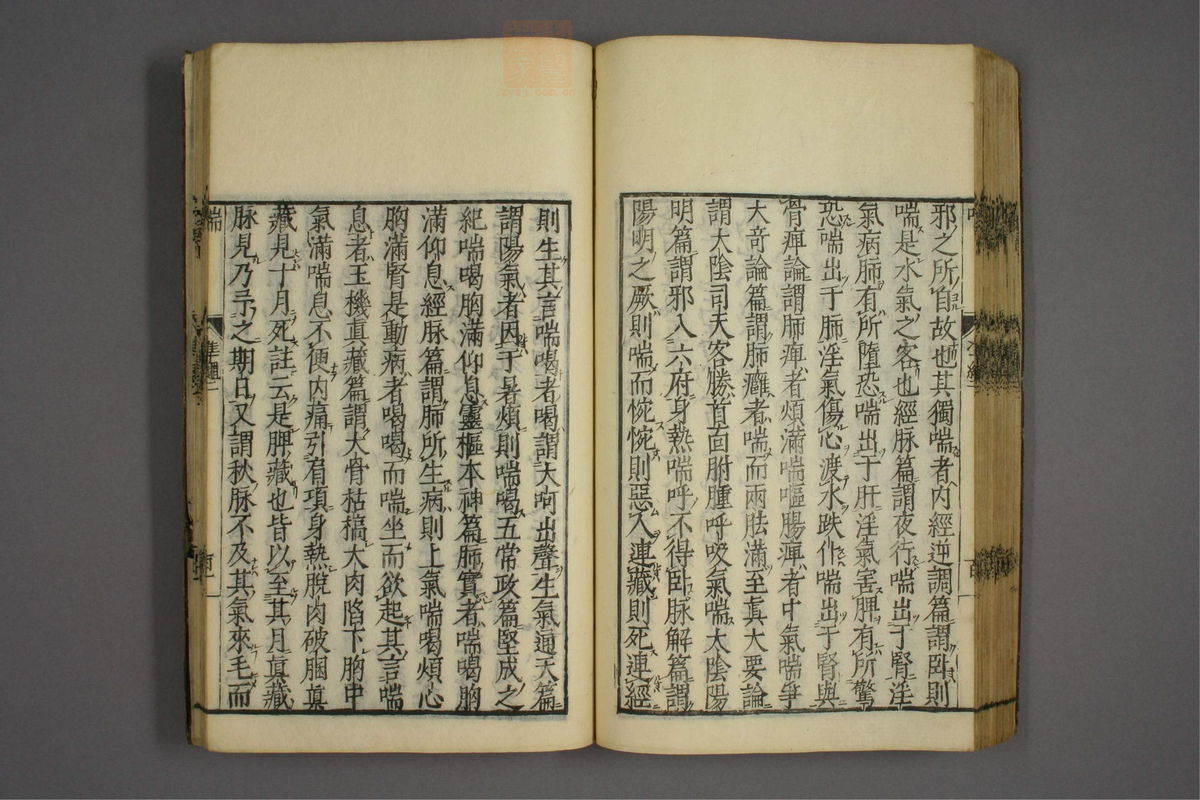 邪之所自故也其獨喘者内經逆調篇謂卧則
喘是水氣之客也經脉篇謂夜行喘出于腎淫
氣病肺有所墮恐喘出于肝淫氣害脾有所驚
恐喘出于肺淫氣傷心渡水跌仆喘出于腎與
骨痺論謂肺痺者煩滿喘嘔腸痺者中氣喘爭
大奇論篇謂肺癰者喘而兩胠滿至真大要論
謂太陰司天客勝首面胕腫呼吸氣喘太陰陽
明篇謂邪入六府身熱喘呼不得卧脉解篇謂
陽明之厥則喘而惋惋則惡人連藏則死連經
則生其言喘喝者喝謂大呵出聲生氣通天篇
謂陽氣者因于暑煩則喘喝五常政篇堅成之
紀喘喝胸滿仰息靈樞本神篇肺實者喘喝胸
滿仰息經脉篇謂肺所生病則上氣喘喝煩心
胸滿腎是動病者喝喝而喘坐而欲起其言喘
息者玉機真藏篇謂大骨枯槁大肉陷下胸中
氣滿喘息不便内痛引肩項身熱脫肉破䐃真
藏見十月死註云是脾藏也皆以至其月真藏
脉見乃予之期日又謂秋脉不及其氣來毛而
喘
準繩二